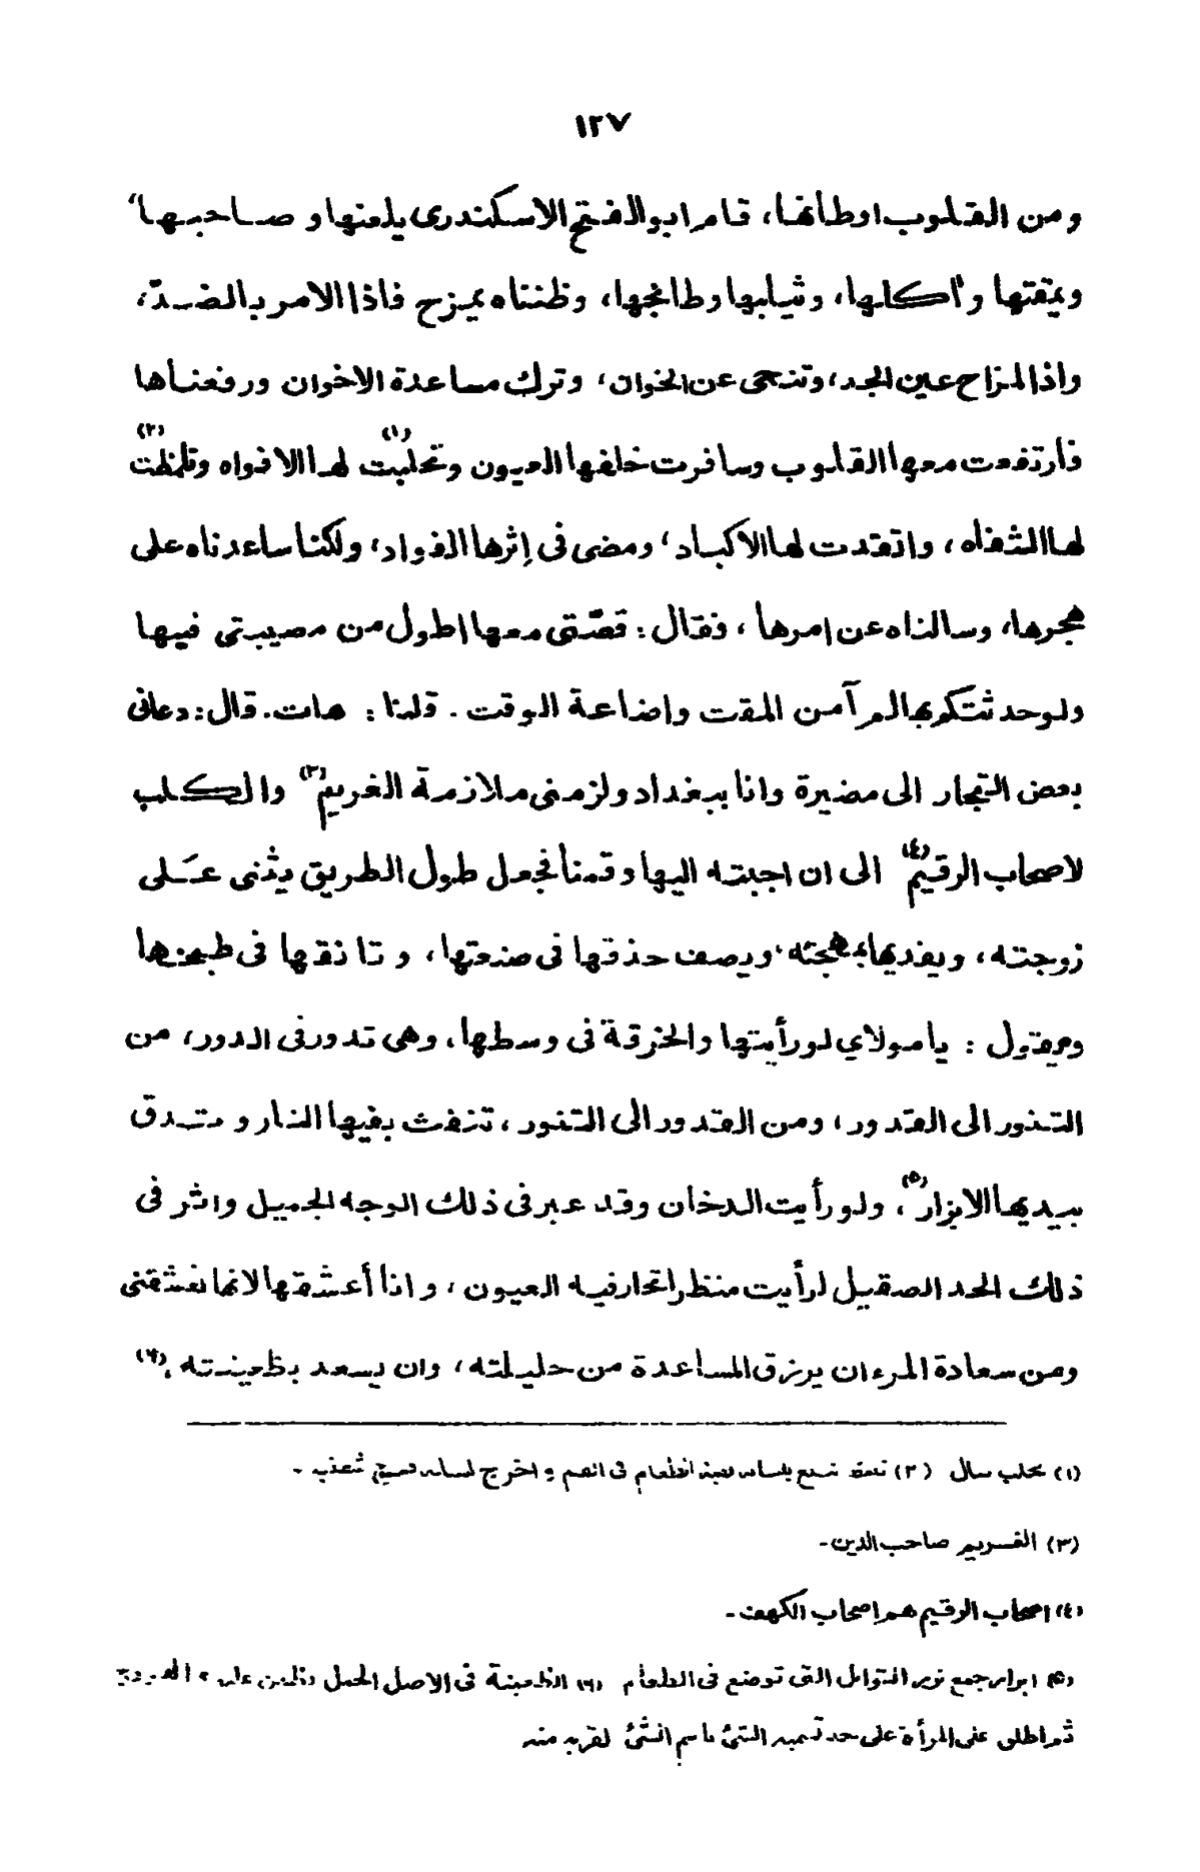 ١٢٧
ومن القلوب اوطأنها، قام ابو الفتح الاسكندرى يلعنها و صاحبها،
ويمقتها وآكلها، وثيابها وطابخها، وظنناه يمزح فاذا الامر بالضدّ،
واذا المزاح عين الجد، وتنحى عن الخوان، وترك مساعدة الاخوان ورفعناها
فأرتفعت معها القلوب وسافرت خلفها العيون وتحلبت (١) لها الافواه وتلمظت (٢)
لها الشفاه، واتقدت لها الاكباد، ومضى فى إثرها الفواد، ولكنا ساعدناه على
هجرها، وسالناه عن امرها، فقال: قصّتى معها اطول من مصيبتى فيها
ولوحد ثتكم بها لم آمن المقت واضاعة الوقت. قلنا: هات. قال: دعانى
بعض التجار الى مضيرة وانا ببغداد ولزمنى ملازمة الغريم (٣) والكلب
لاصحاب الرقيم (٤) الى ان اجبته اليها وقمنا فجعل طول الطريق يثنى عَلى
زوجته، ويفديها بمهجته، ويصف حذقها فى صنعتها، وتانقها فى طبخها
ويقول: يا مولاي لو رأيتها والخرقة فى وسطها، وهى تدور فى الدور، من
التنور الى القدور، ومن القدور الى التنور، تنفث بفيها النار و تدق
بيديها الابزار (٥)، ولو رأيت الدخان وقد عبر فى ذلك الوجه الجميل واثر فى
ذلك الخد الصقيل لرأيت منظرا تحار فيه العيون، وانا أعشقها لانها تعشقنى
ومن سعادة المرء ان يرزق المساعدة من حليلته، وان يسعد بظعينته، (٦)
(١) تحلب سال (٢) تلمظ تتبع بلسانه بقية الطعام فى الفم و اخرج لسانه فمسح شفتيه -
(٣) الغريم صاحب الدين -
(٤) اصحاب الرقيم هم اصحاب الكهف -
(٥) ابزار جمع بزر التوابل التى توضع فى الطعام (٦) الظعينة فى الاصل الجمل يظعن عليه و الهودج
ثم اطلق على المرأة على حد تسمية الشئ باسم الشئ لقربه منه